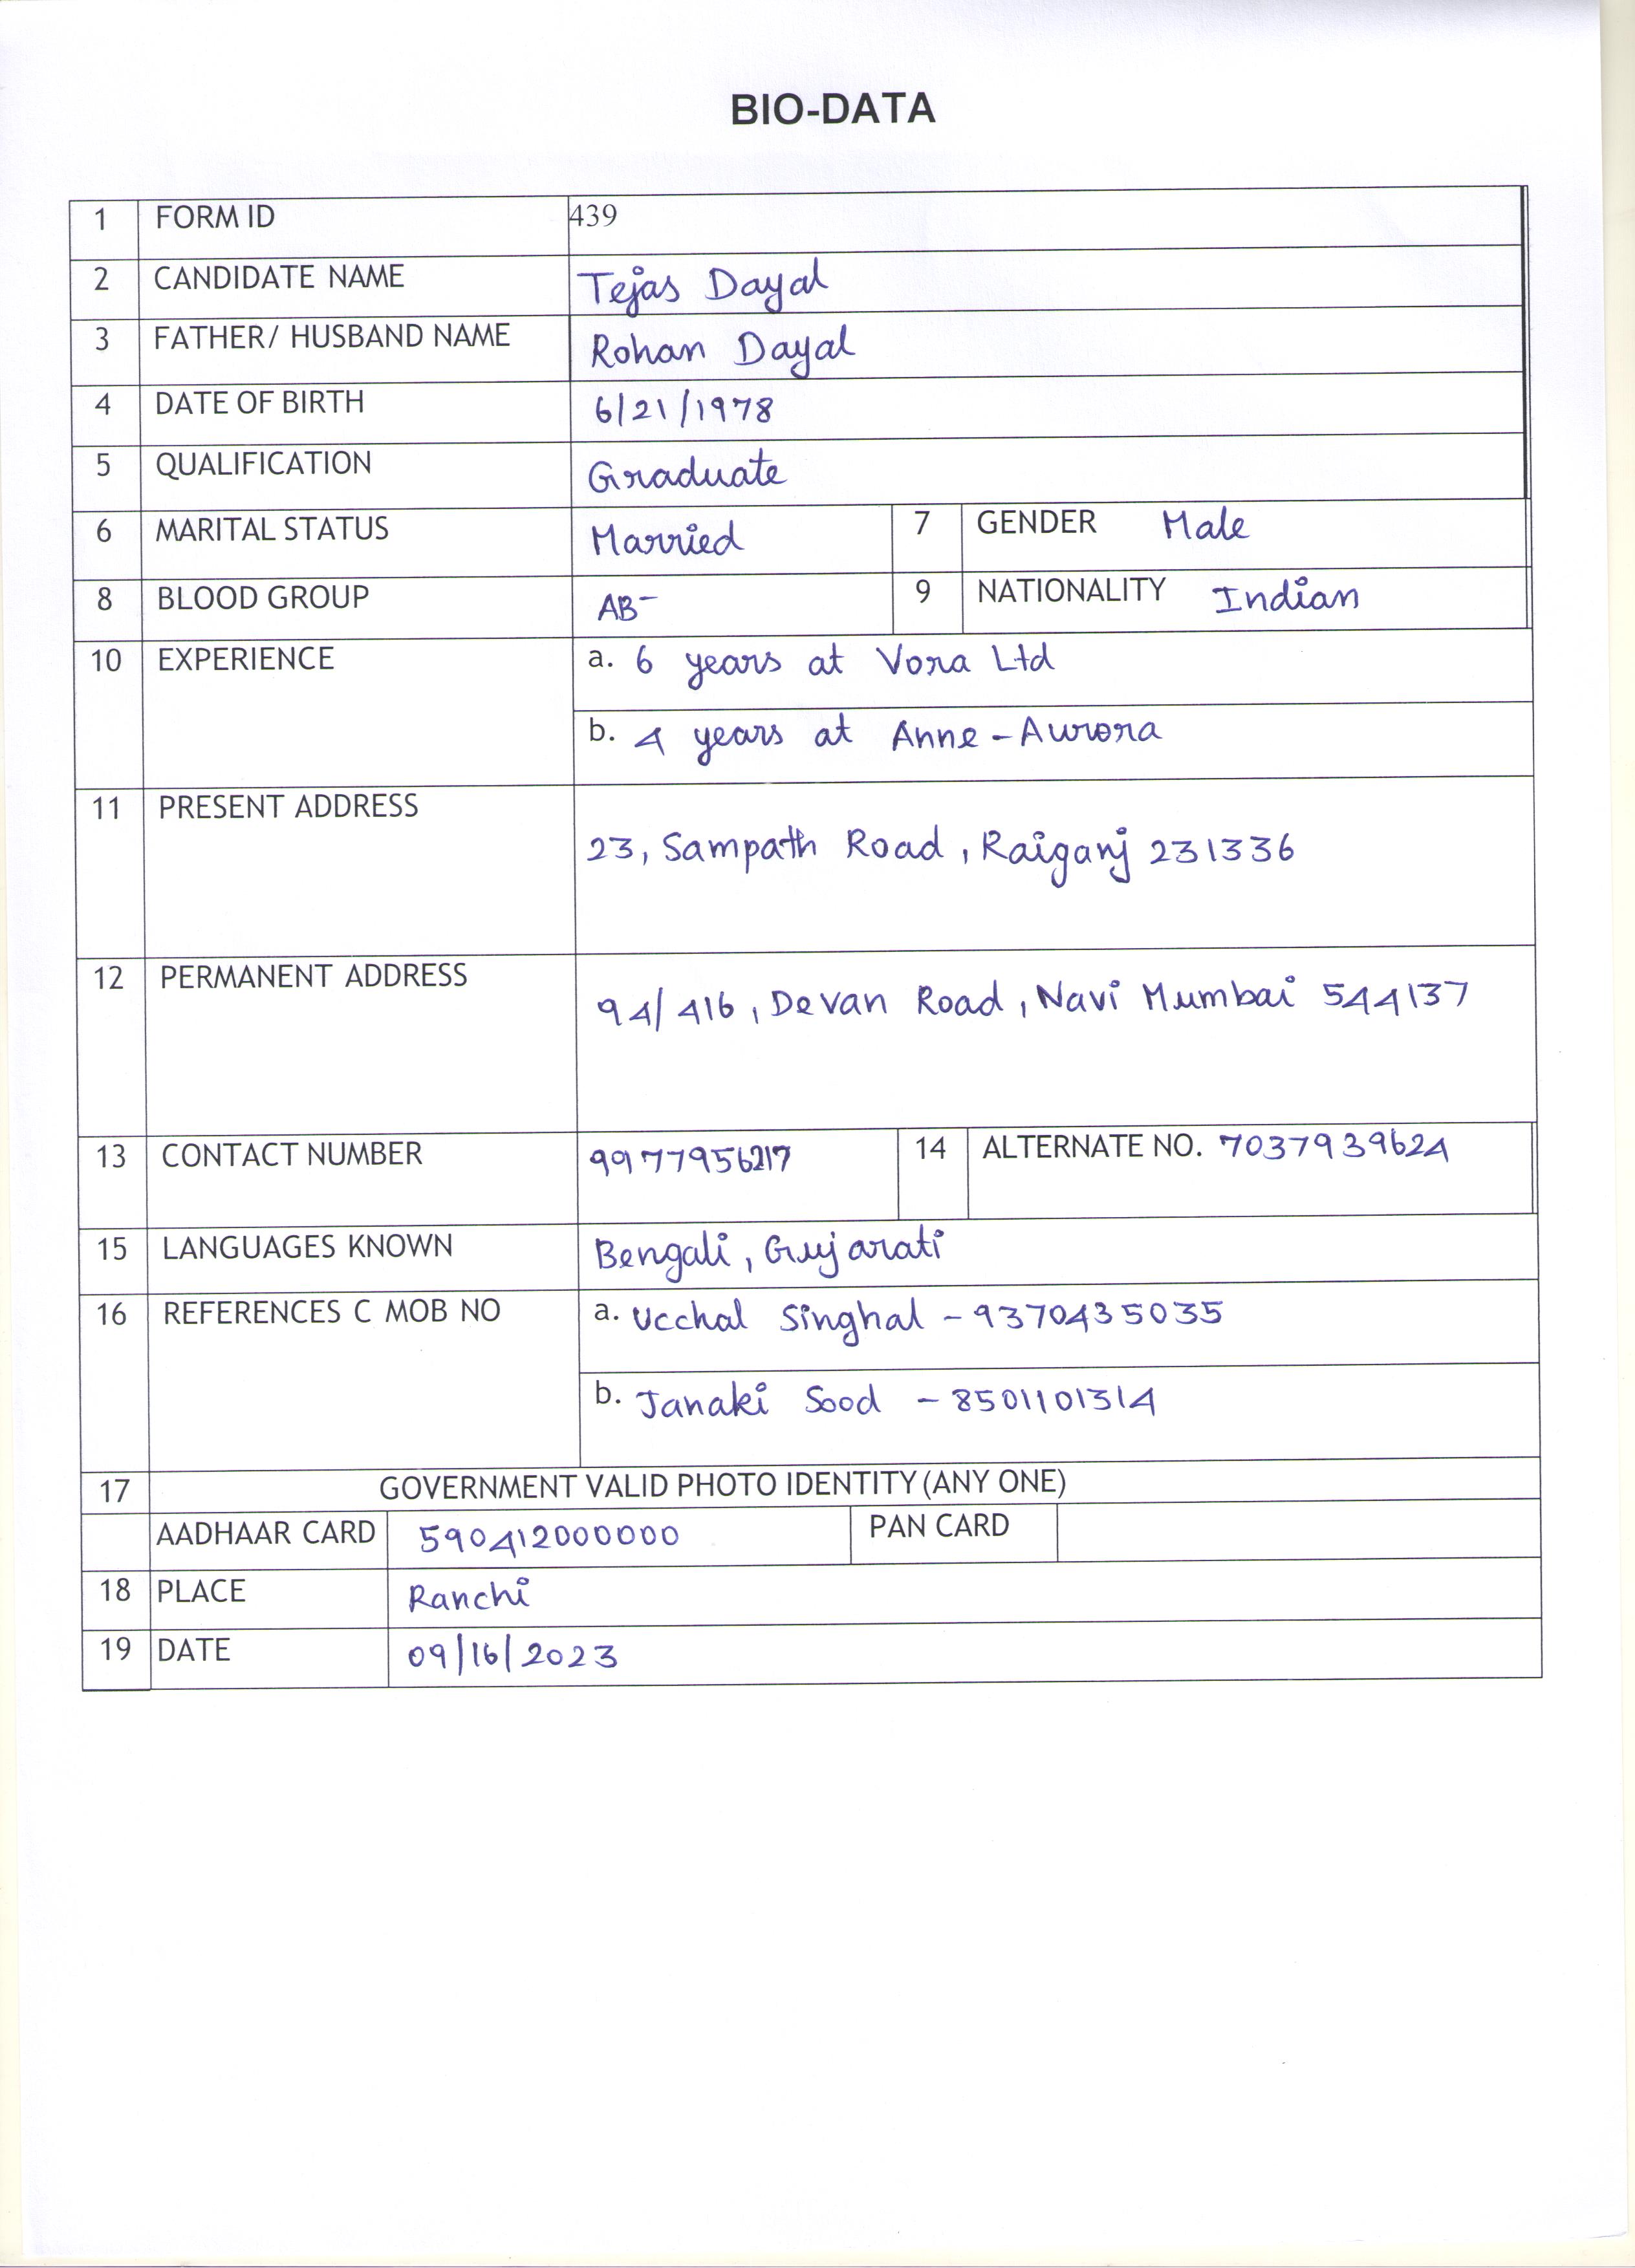 BIO-DATA
1 FORM ID 439
2 CANDIDATE NAME Tejas Dayal
3 FATHER/ HUSBAND NAME Rohan Dayal
4 DATE OF BIRTH 6/21/1978
5 QUALIFICATION Graduate
6 MARITAL STATUS Married 7 GENDER Male
8 BLOOD GROUP AB- 9 NATIONALITY Indian
10 EXPERIENCE a. 6 years at Vora Ltd
b. 4 years at Anne-Aurora
11 PRESENT ADDRESS
23, Sampath Road, Raiganj 231336
12 PERMANENT ADDRESS
94/416, Devan Road, Navi Mumbai 544137
13 CONTACT NUMBER 9977956217 14 ALTERNATE NO. 7037939624
15 LANGUAGES KNOWN Bengali, Gujarati
16 REFERENCES C MOB NO a. Ucchal Singhal - 9370435035
b. Janaki Sood - 8501101314
17 GOVERNMENT VALID PHOTO IDENTITY (ANY ONE)
AADHAAR CARD 590412000000 PAN CARD
18 PLACE Ranchi
19 DATE 09/16/2023